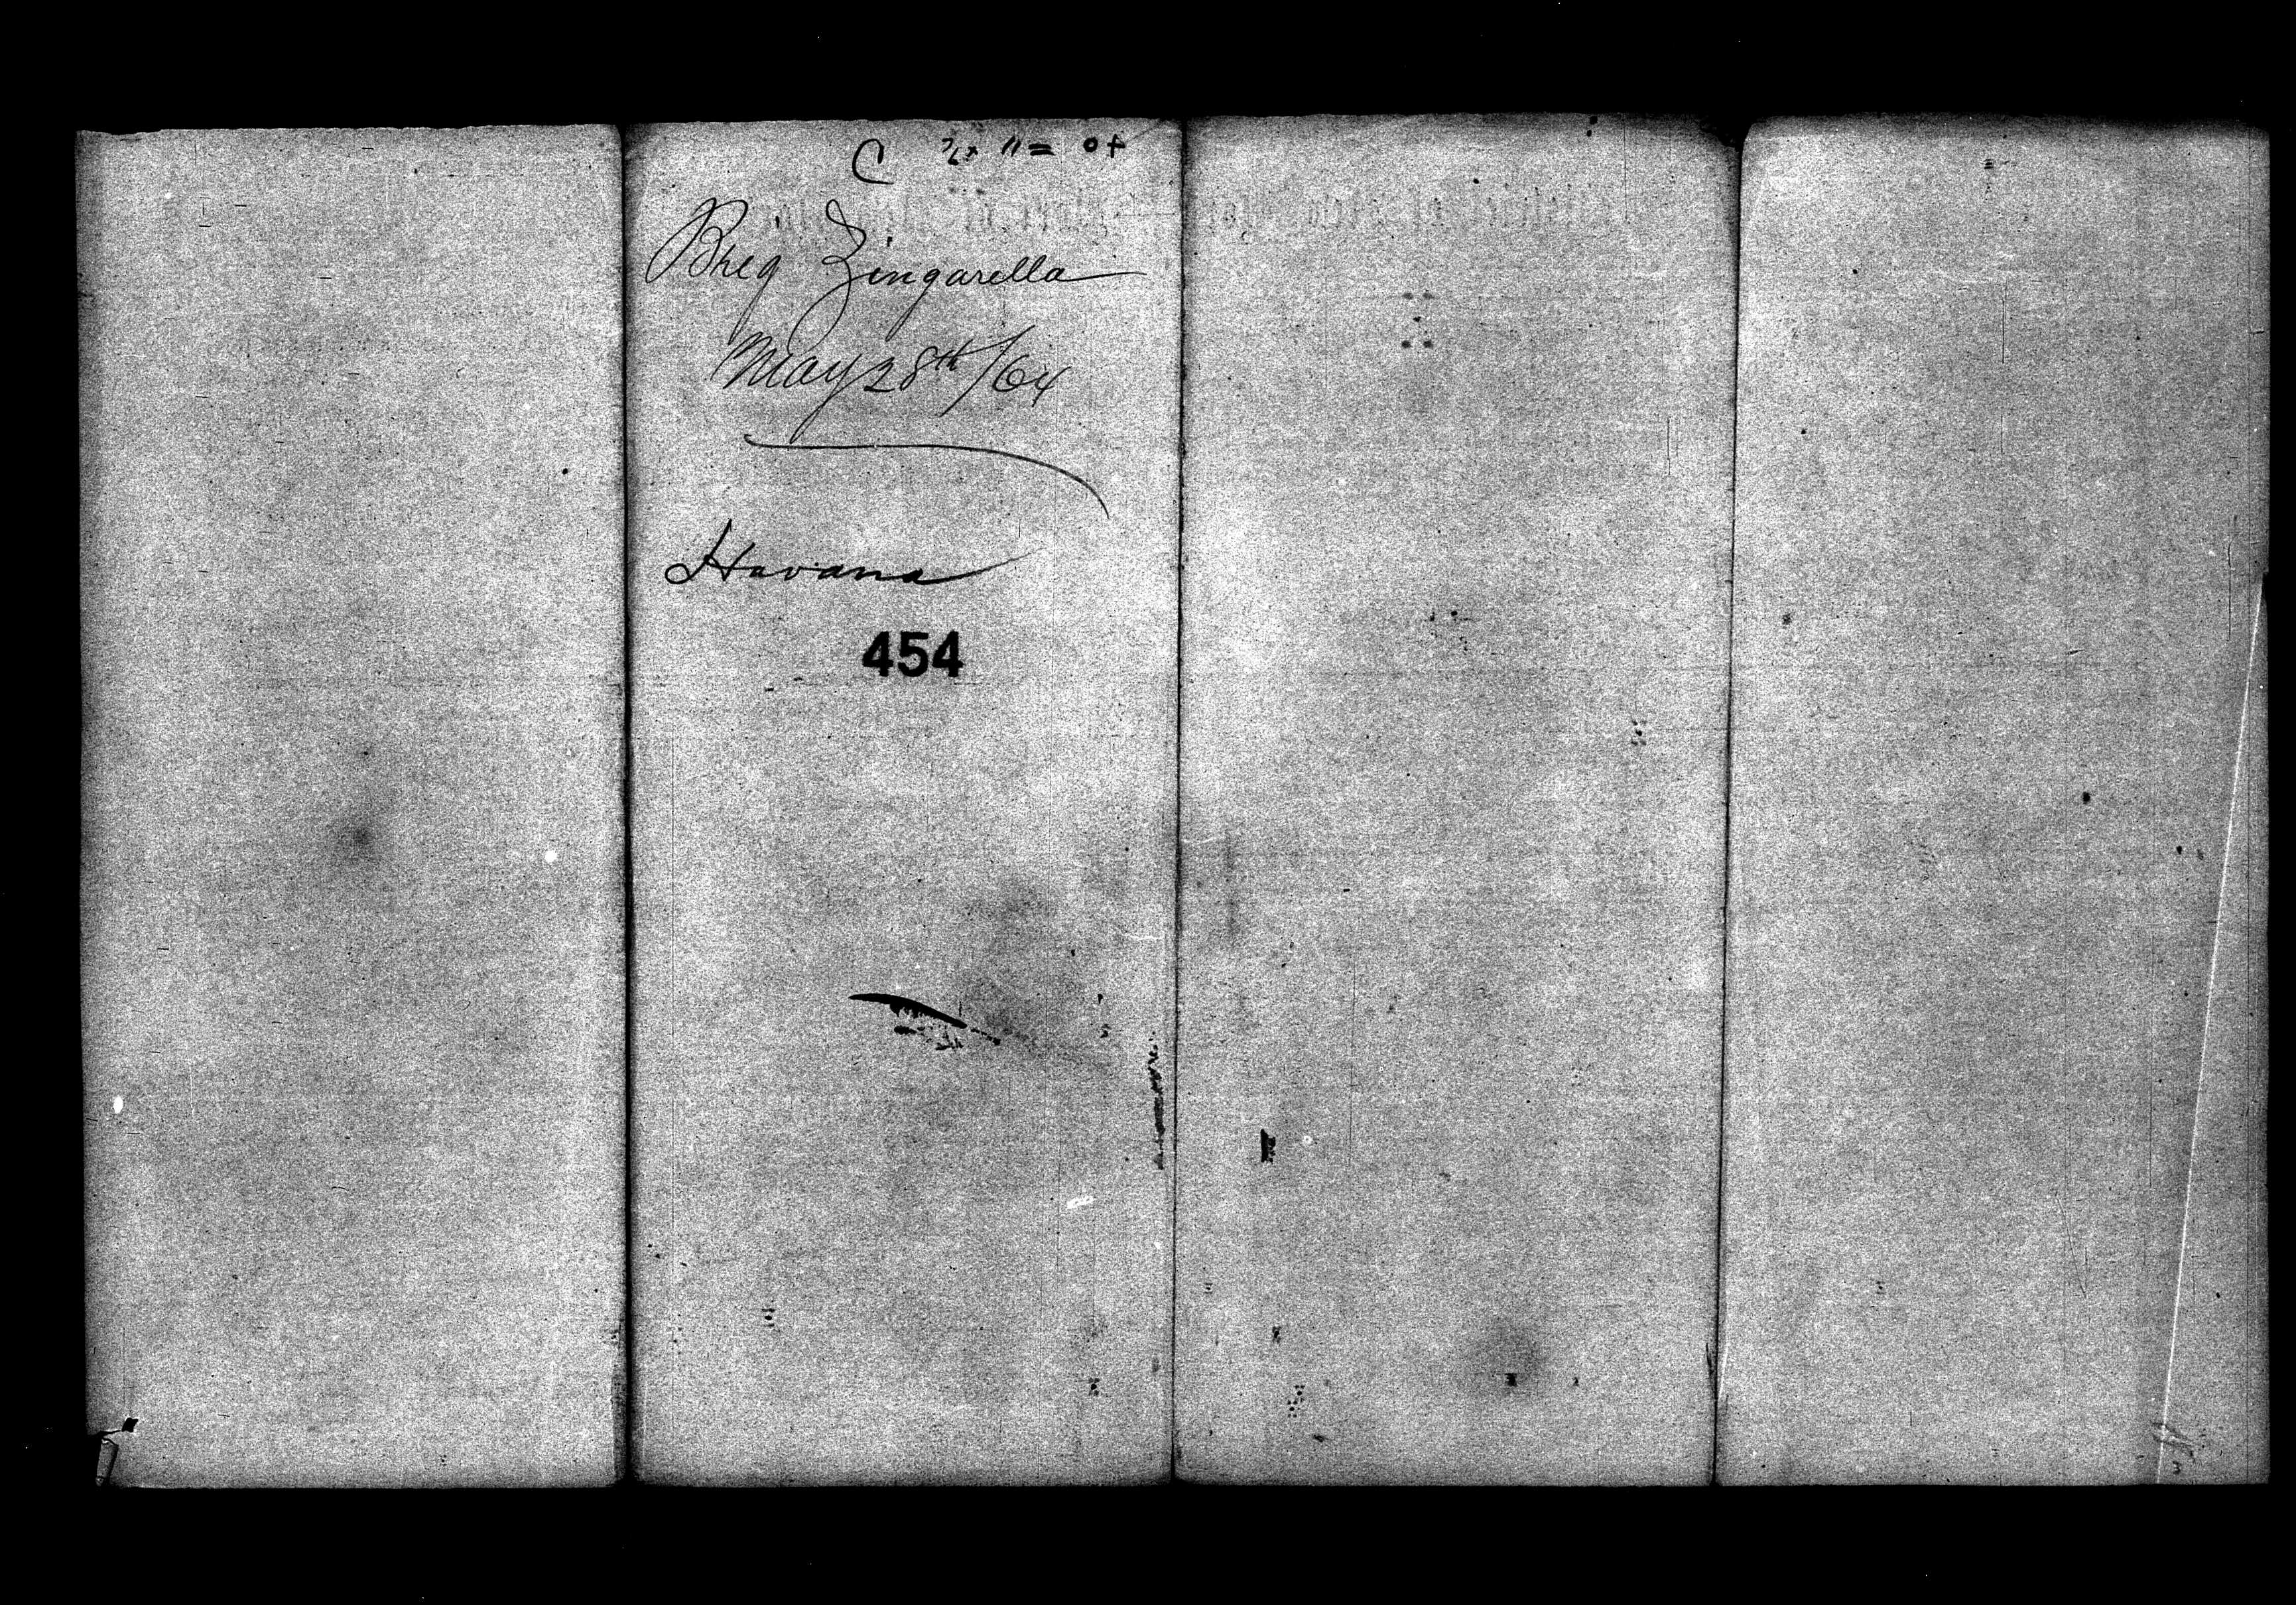 C
Brig Zingarella
May 28th/64
Havana
454